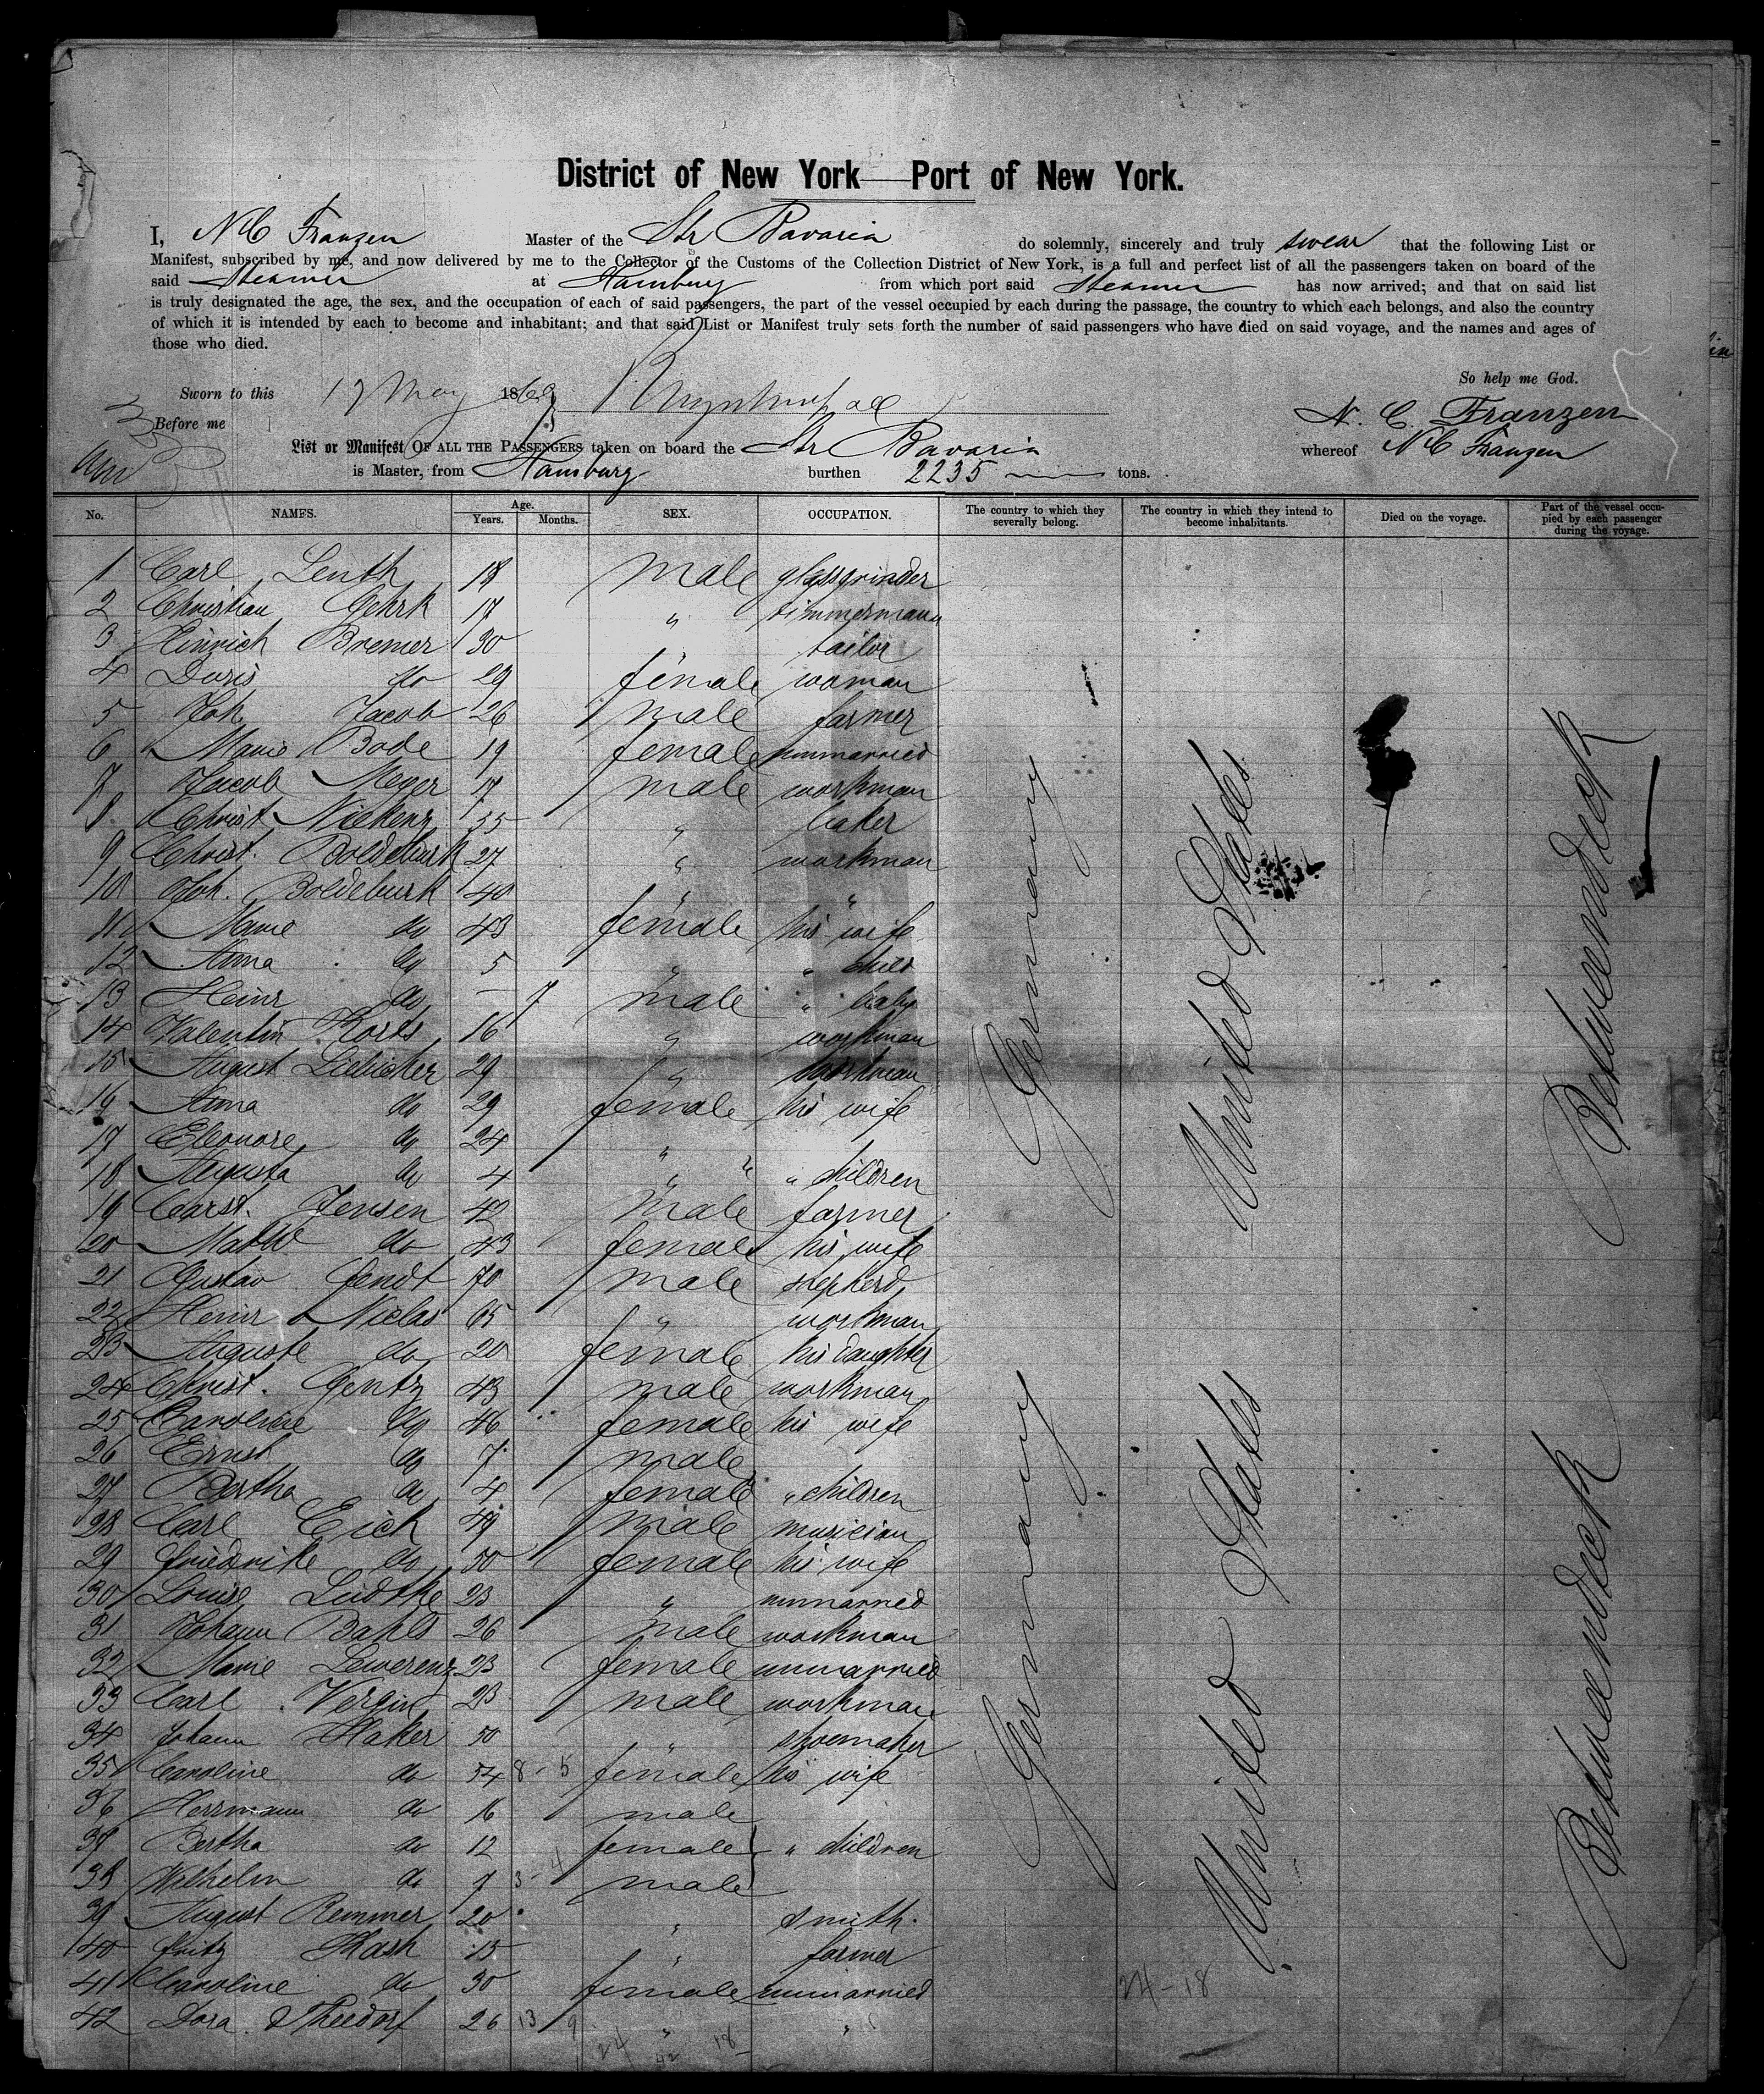 District of New York—Port of New York.
I, N C Franzen Master of the Str Bavaria do solemnly, sincerely and truly swear that the following List or
Manifest, subscribed by me, and now delivered by me to the Collector of the Customs of the Collection District of New York, is a full and perfect list of all the passengers taken on board of the
said Steamer at Hamburg from which port said Steamer has now arrived; and that on said list
is truly designated the age, the sex, and the occupation of each of said passengers, the part of the vessel occupied by each during the passage, the country to which each belongs, and also the country
of which it is intended by each to become and inhabitant; and that said List or Manifest truly sets forth the number of said passengers who have died on said voyage, and the names and ages of
those who died.
So help me God.
Sworn to this 17 May 1869
N. C. Franzen
Before me
List or Manifest OF ALL THE PASSENGERS taken on board the Str Bavaria whereof N C Franzen
is Master, from Hamburg burthen 2235 tons.
No. NAMES. Age. Years. Months. SEX. OCCUPATION. The country to which they severally belong. The country in which they intend to become inhabitants. Died on the voyage. Part of the vessel occupied by each passenger during the voyage.
1 Carl Lenth 18 male glassgrinder
2 Christian Gehrk 17 " zimmermann
3 Hinrich Bremer 30 tailor
4 Doris do 29 female woman
5 Joh. Jacob 26 male farmer
6 Marie Bode 19 female unmarried
7 Jacob Meyer 17 male workman
8 Christ. 35 " baker
9 Christ. Boldebuck 27 " workman
10 Joh. Boldebuck 40 "
11 Marie do 43 female his wife
12 Anna do 5 " " child
13 Heinr do – 7 male " baby
14 Valentin 16 " workman
15 August 29 " workman
16 Anna do 29 female his wife
17 Eleonore do 24 "
18 Augusta do 4 " " " children
19 Carst. Jensen 42 male farmer
20 do 43 female his wife
21 Gustav Gendt 70 male shepherd
22 Heinr Niclas 65 " workman
23 Auguste do 20 female his daughter
24 Christ. Gentz 43 male workman
25 Caroline do 46 female his wife
26 Ernst do 7 male
27 Bertha do 4 female " children
28 Carl Eich 49 male musician
29 Friedrike do 50 female his wife
30 Louise Lüdtke 23 " unmarried
31 Johann Bahls 26 male workman
32 Marie Lewerenz 23 female unmarried
33 Carl Vergin 23 male workman
34 Johann Haker 50 " shoemaker
35 Caroline do 54 8 - 5 female his wife
36 Herrmann do 16 male
37 Bertha do 12 female " children
38 Wilhelm do 9 3 - 4 male
39 August Remmer 20 " smith.
40 Fritz Kash 15 " farmer
41 Caroline do 30 female unmarried
42 Dora 26 13 9 " "
Germany United States Betweendeck
Germany United States Betweendeck
24 - 18
24 42 18